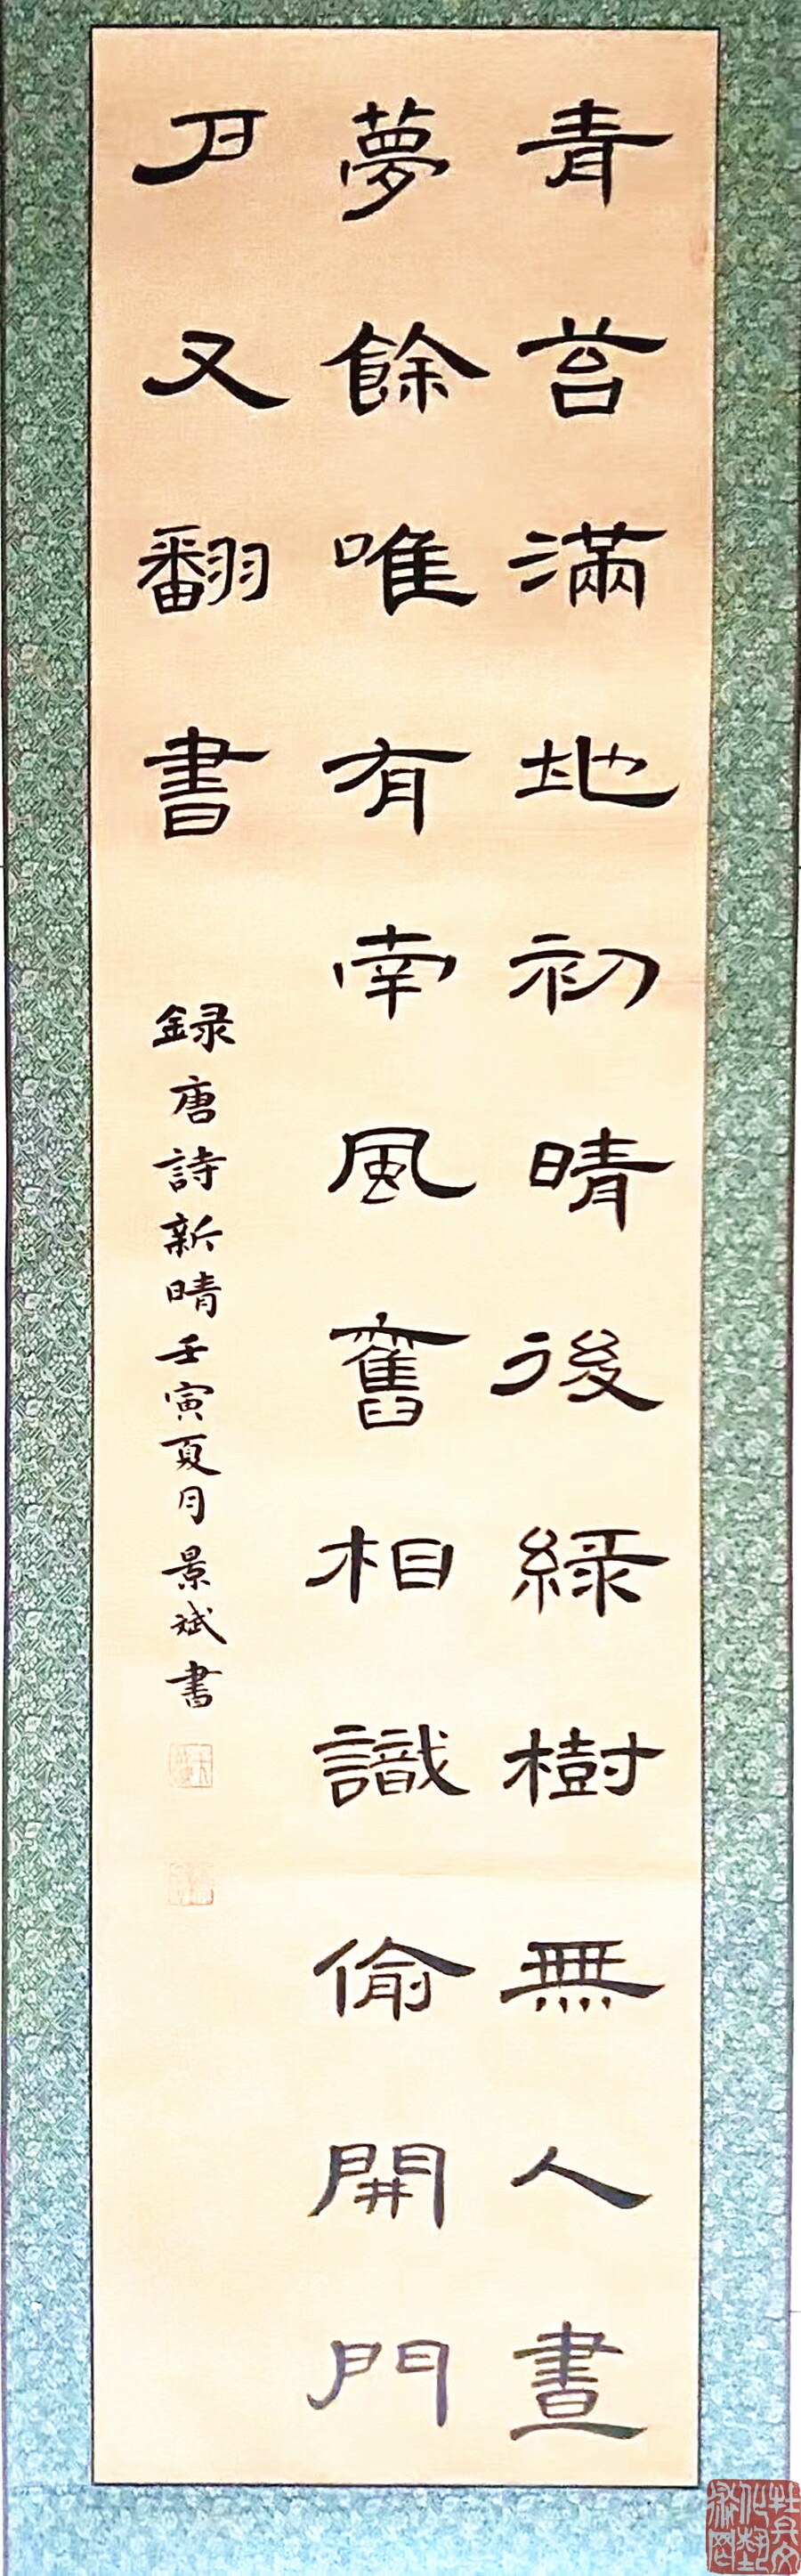 青苔滿地初晴後綠樹無人晝
夢餘唯有南風舊相識偷開門
戶又翻書
録唐詩新晴壬寅夏月景斌書